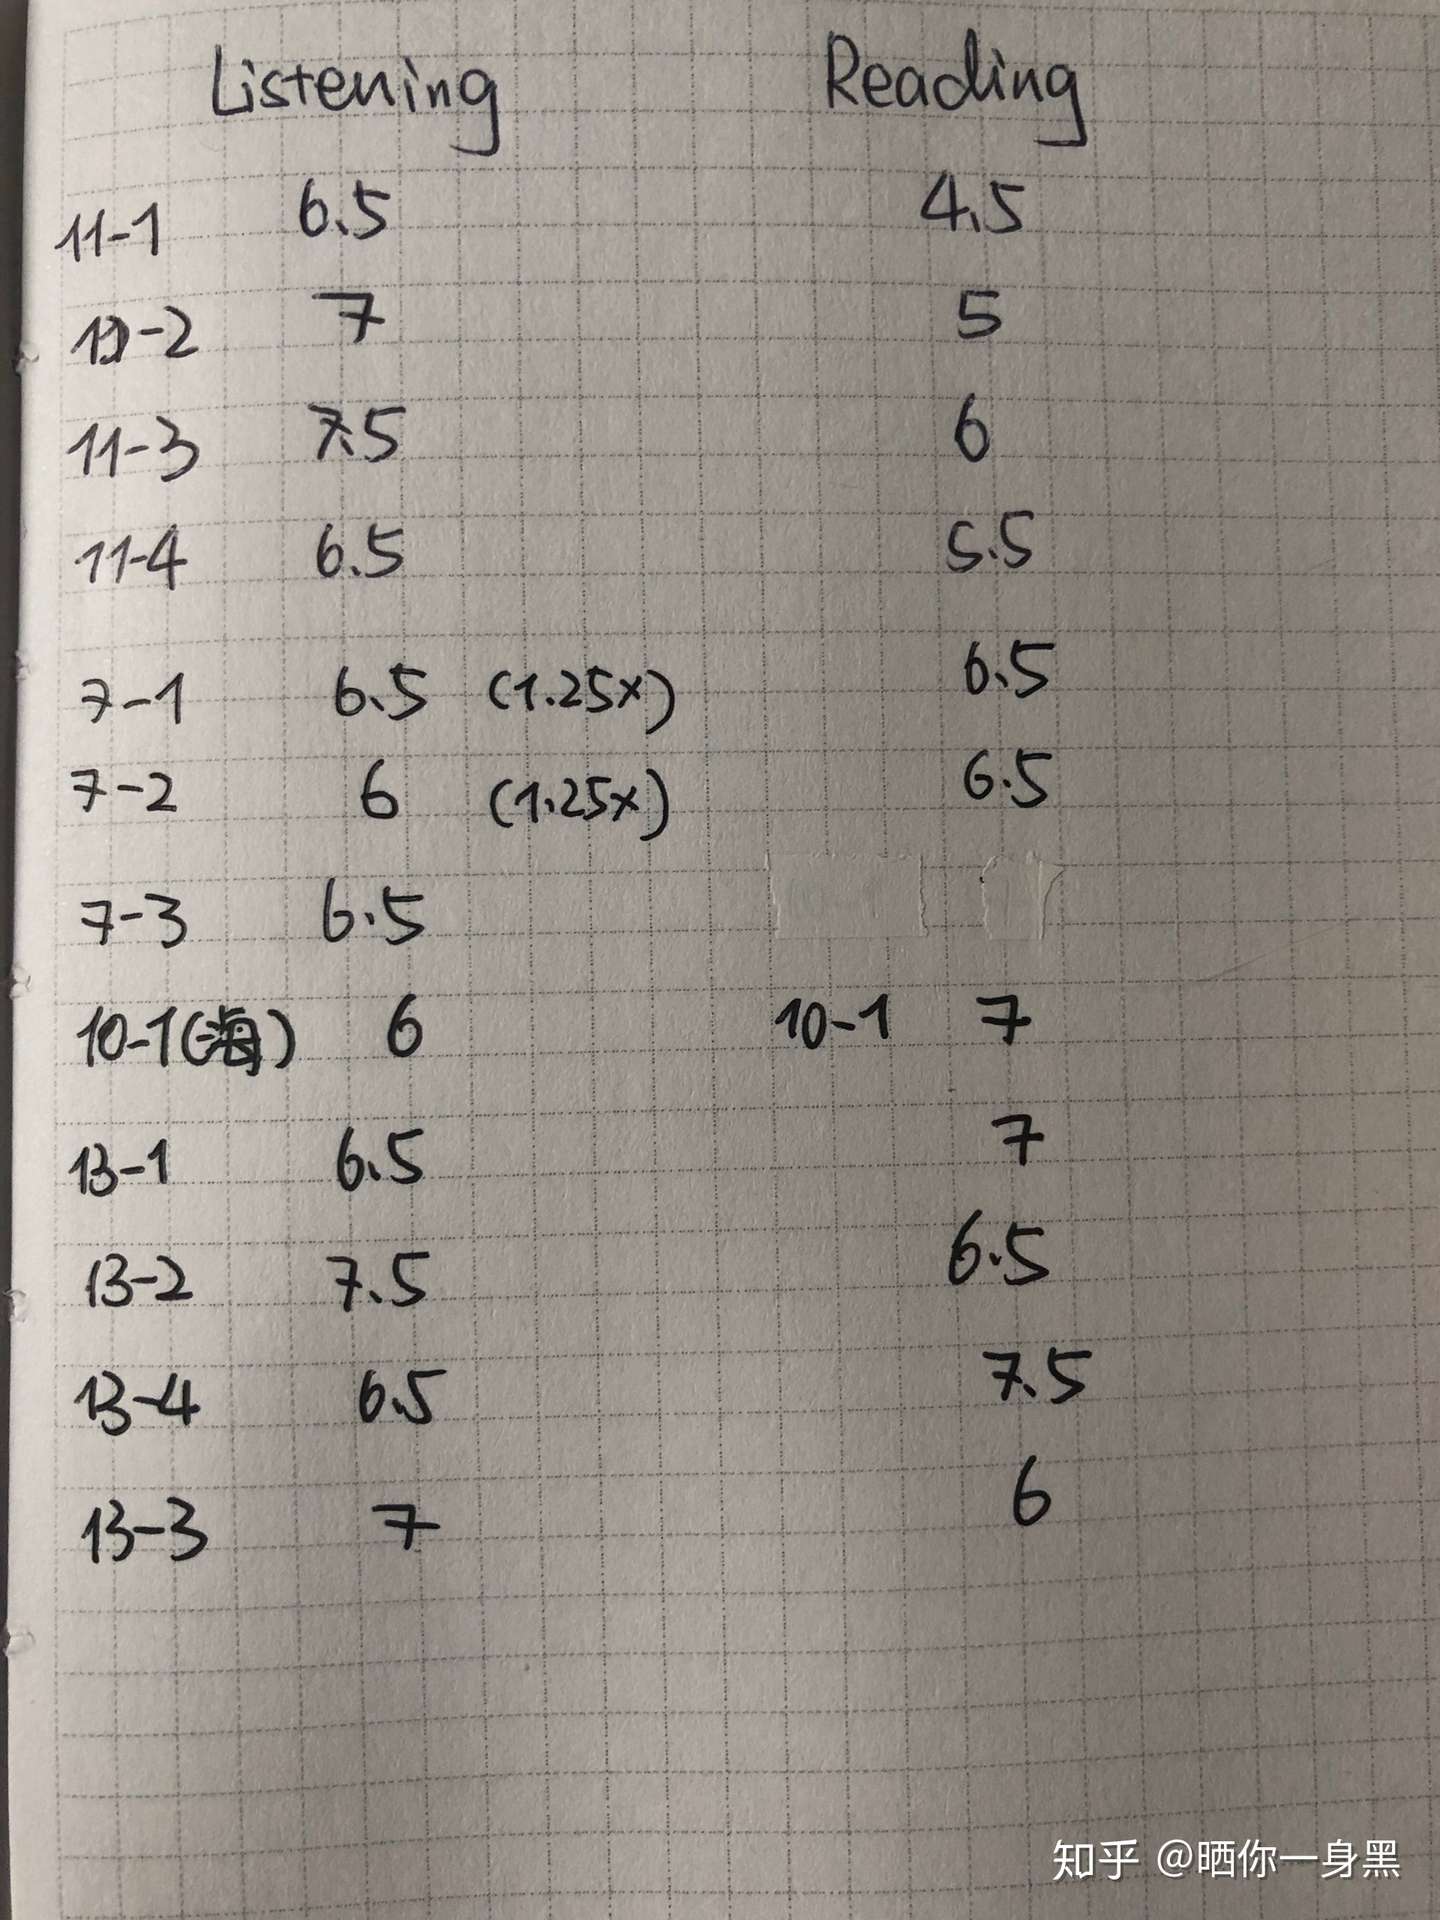 Listening Reading
11-1 6.5 4.5
11-2 7 5
11-3 7.5 6
11-4 6.5 5.5
7-1 6.5 (1.25x) 6.5
7-2 6 (1.25x) 6.5
7-3 6.5
10-1(海) 6 10-1 7
13-1 6.5 7
13-2 7.5 6.5
13-4 6.5 7.5
13-3 7 6
知乎 @晒你一身黑